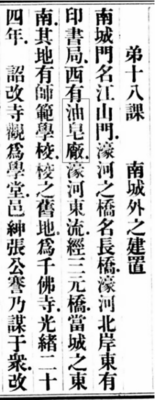 第十八課　南城外之建置
南城門名江山門．濠河之橋名長橋．濠河北岸東有
印書局．西有油皂廠．濠河東流．經三元橋．當城之東
南．其地有師範學校．校之舊地爲千佛寺．光緒二十
四年．　詔改寺觀爲學堂．邑紳張公謇乃謀于衆．改